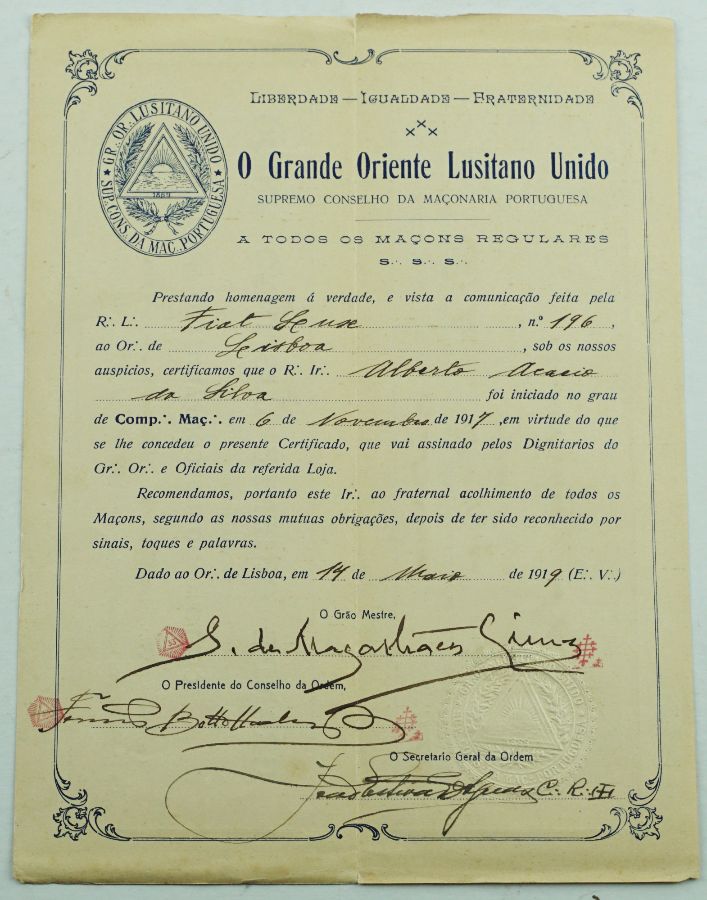 LIBERDADE — IGUALDADE — FRATERNIDADE
GR. OR. LUSITANO UNIDO
SUP. CONS. DA MAÇ. PORTUGUESA
O Grande Oriente Lusitano Unido
SUPREMO CONSELHO DA MAÇONARIA PORTUGUESA
A TODOS OS MAÇONS REGULARES
S∴ S∴ S∴
Prestando homenagem á verdade, e vista a comunicação feita pela
R∴ L∴ Fiat Luxe, n.º 196,
ao Or∴ de Lisboa, sob os nossos
auspicios, certificamos que o R∴ Ir∴ Alberto Acacio
da Silva foi iniciado no grau
de Comp∴ Maç∴ em 6 de Novembro de 1917, em virtude do que
se lhe concedeu o presente Certificado, que vai assinado pelos Dignitarios do
Gr∴ Or∴ e Oficiais da referida Loja.
Recomendamos, portanto este Ir∴ ao fraternal acolhimento de todos os
Maçons, segundo as nossas mutuas obrigações, depois de ter sido reconhecido por
sinais, toques e palavras.
Dado ao Or∴ de Lisboa, em 14 de Maio de 1919 (E∴ V∴)
O Grão Mestre,
S. de Magalhães Lima
O Presidente do Conselho da Ordem,
O Secretario Geral da Ordem
C∴ R∴